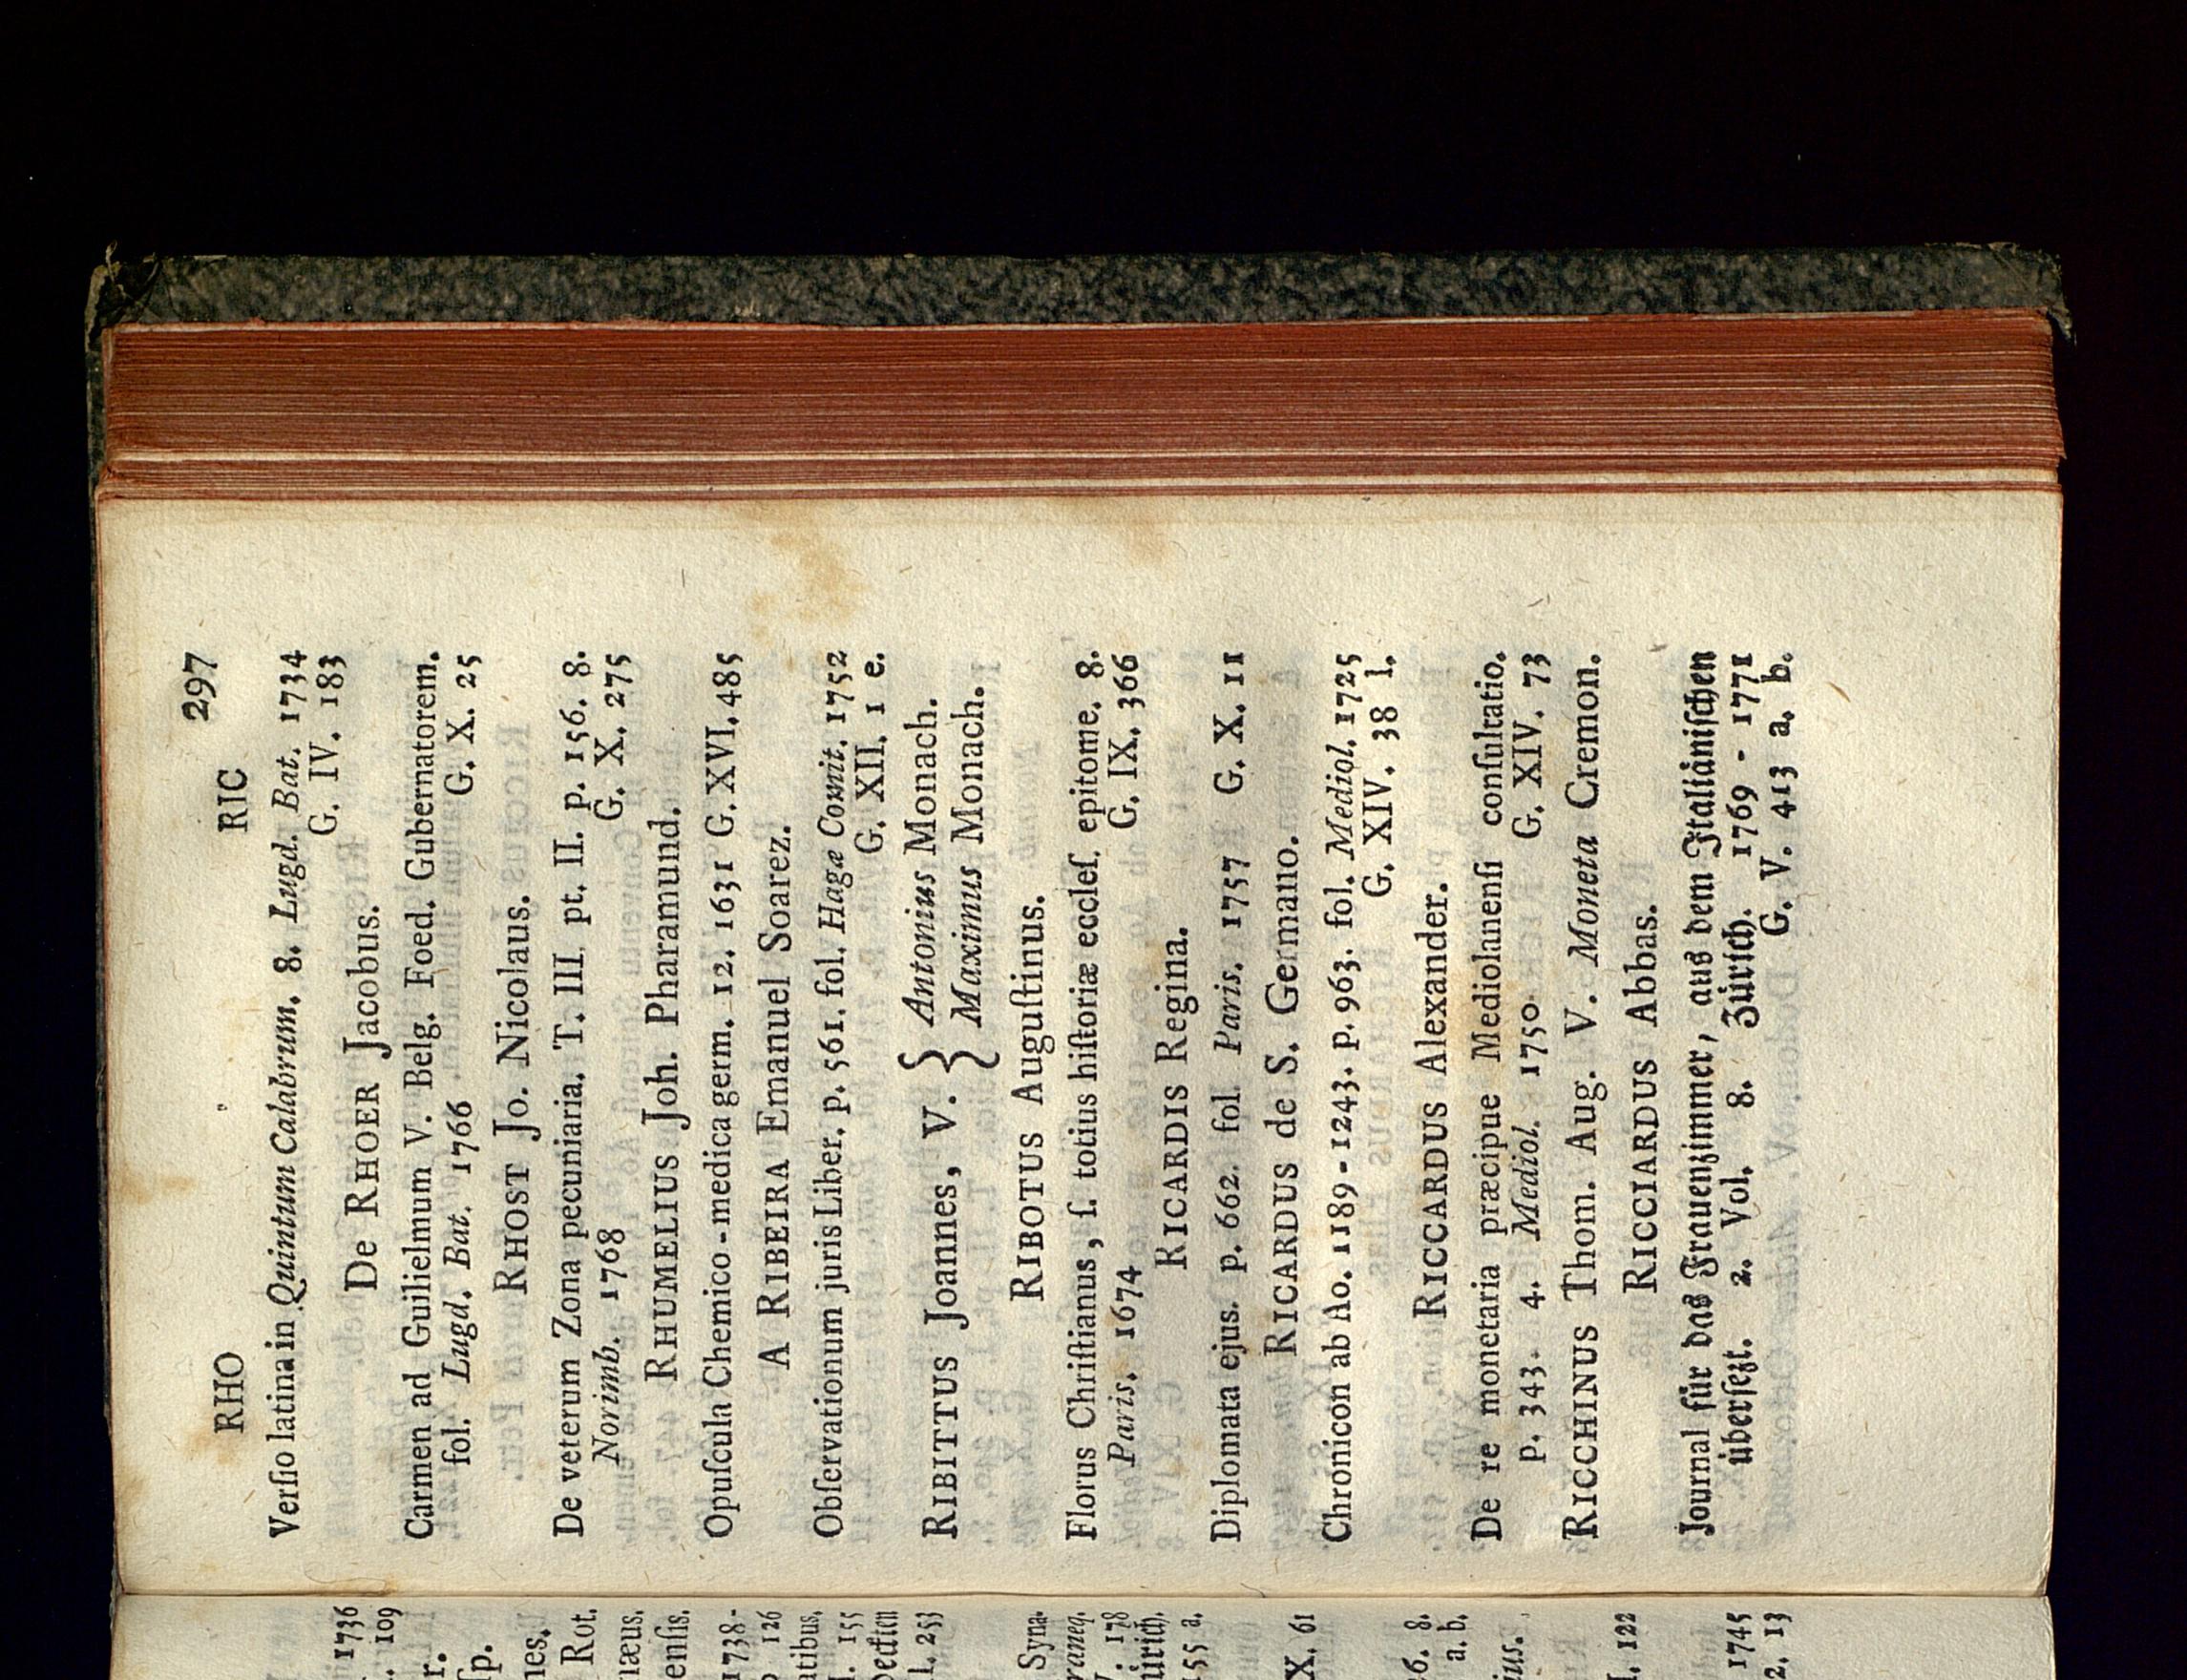 RHO RIC 297
Verſio latina in Quintum Calabrum. 8. Lugd. Bat. 1734
G. IV. 183
De RHOER Jacobus.
Carmen ad Guilielmum V. Belg. Foed. Gubernatorem.
fol. Lugd. Bat. 1766 G. X. 25
RHOST Jo. Nicolaus.
De veterum Zona pecuniaria. T. III. pt. II. p. 156. 8.
Norimb. 1768 G. X. 275
RHUMELIUS Joh. Pharamund.
Opuſcula Chemico-medica germ. 12. 1631 G. XVI. 485
A RIBEIRA Emanuel Soarez.
Obſervationum juris Liber. p. 561. fol. Hagæ Comit. 1752
G. XII. 1 e.
RIBITTUS Joannes, V. { Antonius Monach.
Maximus Monach.
RIBOTUS Auguſtinus.
Florus Chriſtianus, ſ. totius hiſtoriæ eccleſ. epitome. 8.
Paris. 1674 G. IX. 366
RICARDIS Regina.
Diplomata ejus. p. 662. fol. Paris. 1757 G. X. 11
RICARDUS de S. Germano.
Chronicon ab Ao. 1189-1243. p. 963. fol. Mediol. 1725
G. XIV. 38 l.
RICCARDUS Alexander.
De re monetaria præcipue Mediolanenſi conſultatio.
p. 343. 4. Mediol. 1750. G. XIV. 73
RICCHINUS Thom. Aug. V. Moneta Cremon.
RICCIARDUS Abbas.
Journal für das Frauenzimmer, aus dem Italiäniſchen
überſezt. 2. Vol. 8. Zürich. 1769 - 1771
G. V. 413 a. b.
1736
109
Rot.
1738-
126
155
253
Syna-
178
155 a.
X. 61
6. 8.
a. b.
122
1745
2. 13